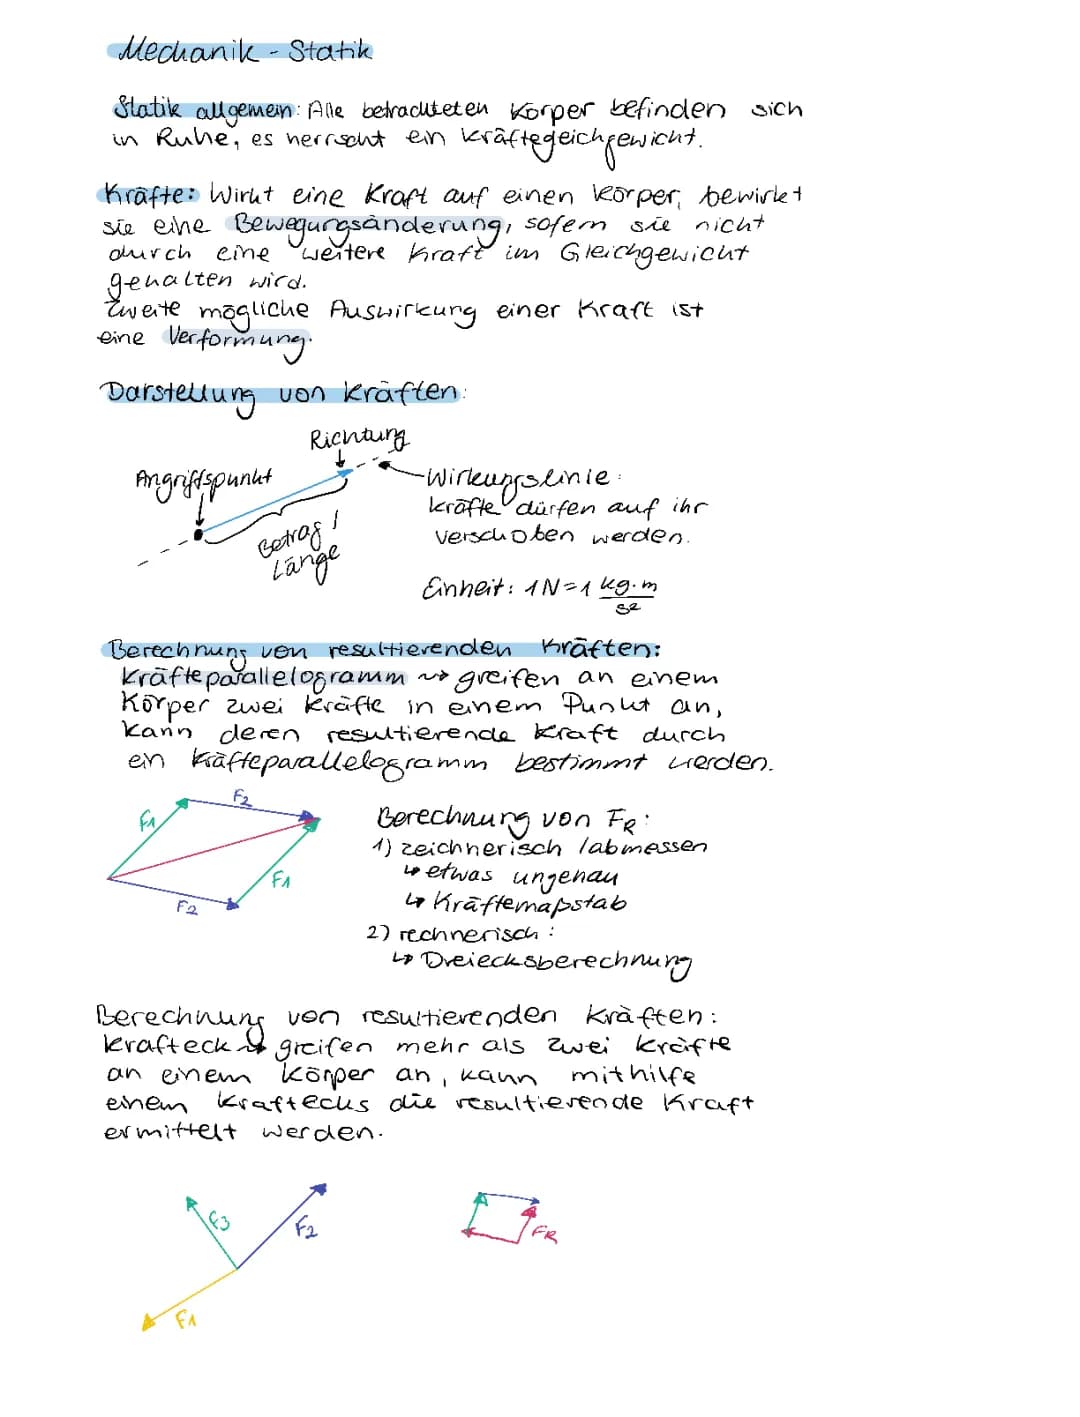 Mechanik - Statik
Statik allgemein: Alle betrachteten Körper befinden sich
in Ruhe, es herrscht ein kräftegeichgewicht.
Kräfte: Wirkt eine Kraft auf einen Körper, bewirkt
sie eine Bewegungsänderung, sofern sie nicht
durch eine weitere Kraft im Gleichgewicht
gehalten wird.
Zweite mögliche Auswirkung einer Kraft ist
eine Verformung.
Darstellung von Kräften:
Richtung
Angriffspunkt
Wirkungslinie:
Kräfte dürfen auf ihr
verschoben werden.
Betrag /
Länge
Einheit: 1N = 1 kg·m
s2
Berechnung von resultierenden Kräften:
Kräfteparallelogramm ↝ greifen an einem
Körper zwei Kräfte in einem Punkt an,
kann deren resultierende Kraft durch
ein Käfteparallelogramm bestimmt werden.
F1
F2
F1
F2
Berechnung von FR:
1) zeichnerisch / abmessen
↳ etwas ungenau
↳ Kräftemaßstab
2) rechnerisch:
↳ Dreiecksberechnung
Berechnung von resultierenden Kräften:
Krafteck ↝ greifen mehr als zwei Kräfte
an einem Körper an, kann mithilfe
einem Kraftecks die resultierende Kraft
ermittelt werden.
F3
F2
F1
FR